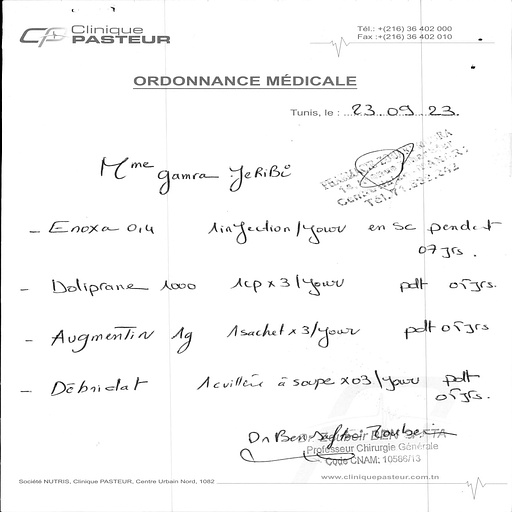 Clinique
PASTEUR
Tél.: +(216) 36 402 000
Fax :+(216) 36 402 010
ORDONNANCE MÉDICALE
Tunis, le : 23.09.23.
Mme gamra JERIBI
- Enoxa 0,4 1injection/jour en sc pendant
07 jrs.
- Doliprane 1000 1cp x 3/jour pdt 05 jrs.
- Augmentin 1g 1sachet x 3/jour pdt 05 jrs
- Débridat 1 cuillère à soupe x03/jour pdt
05 jrs.
Professeur Chirurgie Générale
Code CNAM: 10566/13
Société NUTRIS, Clinique PASTEUR, Centre Urbain Nord, 1082
www.cliniquepasteur.com.tn